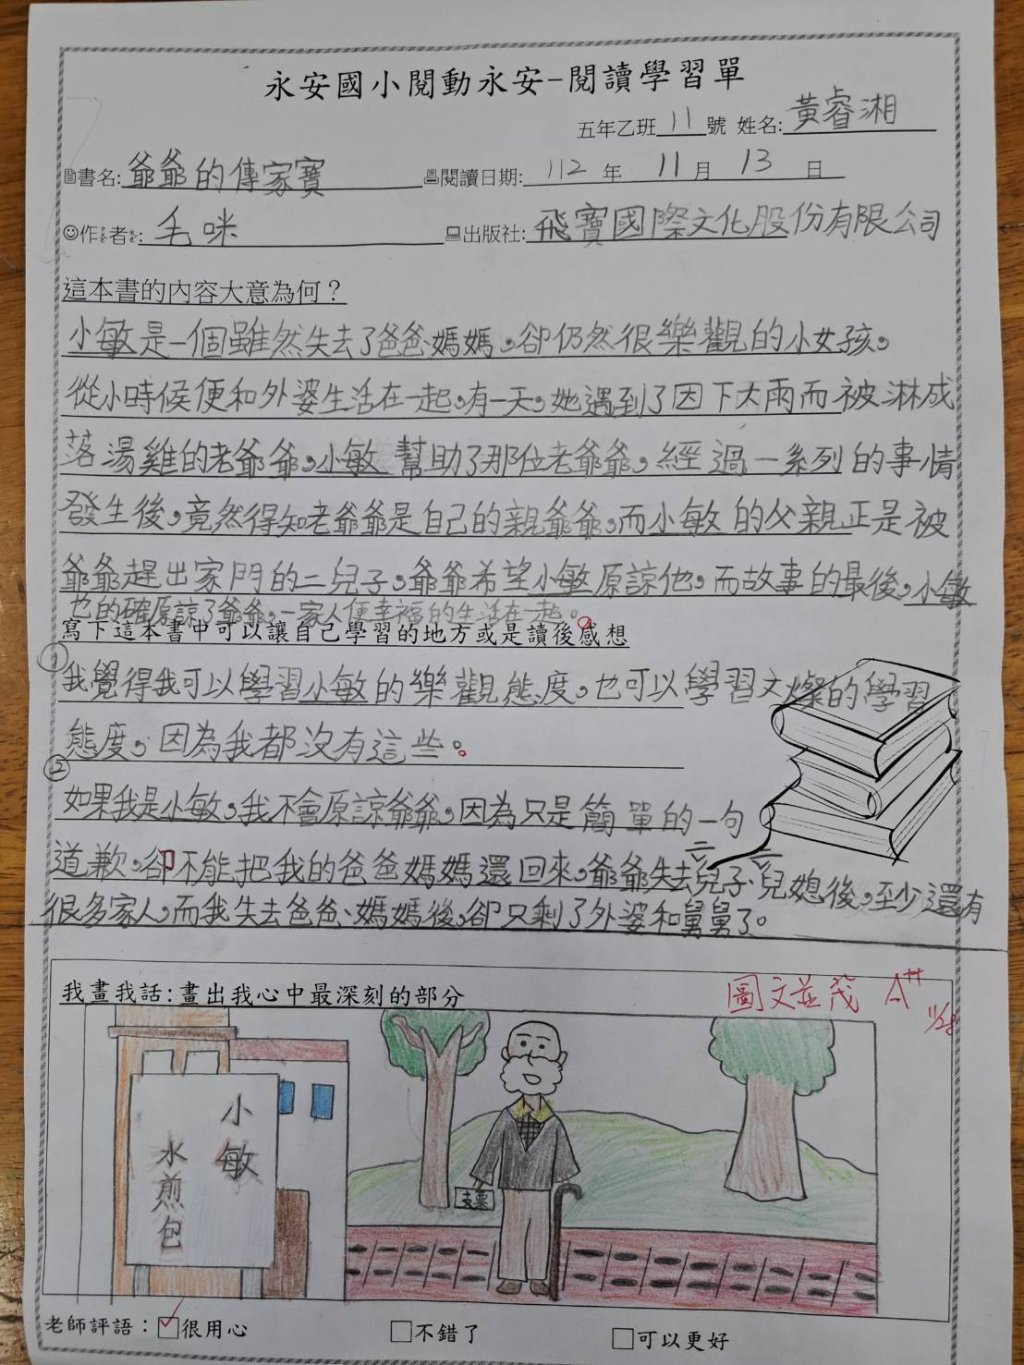 永安國小閱動永安-閱讀學習單
五年乙班 11 號 姓名: 黃睿湘
書名: 爺爺的傳家寶 閱讀日期: 112 年 11 月 13 日
作者: 毛咪 出版社: 飛寶國際文化股份有限公司
這本書的內容大意為何?
小敏是一個雖然失去了爸爸、媽媽,卻仍然很樂觀的小女孩,
從小時候便和外婆生活在一起,有一天,她遇到了因下大雨而被淋成
落湯雞的老爺爺,小敏幫助了那位老爺爺,經過一系列的事情
發生後,竟然得知老爺爺是自己的親爺爺,而小敏的父親正是被
爺爺趕出家門的二兒子,爺爺希望小敏原諒他,而故事的最後,小敏
也的確原諒了爺爺,一家人便幸福的生活在一起。
寫下這本書中可以讓自己學習的地方或是讀後感想
① 我覺得我可以學習小敏的樂觀態度,也可以學習文燦的學習
態度,因為我都沒有這些。
② 如果我是小敏,我不會原諒爺爺,因為只是簡單的一句
道歉,卻不能把我的爸爸媽媽還回來,爺爺失去二兒子、二兒媳後,至少還有
很多家人,而我失去爸爸、媽媽後,卻只剩了外婆和舅舅了。
我畫我話:畫出我心中最深刻的部分
圖文並茂 A++ 11/28
小敏
水煎包
支票
老師評語: 很用心 不錯了 可以更好